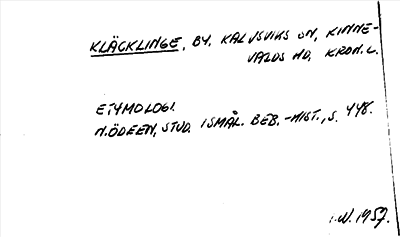 KLÄCKLINGE, BY. KALVSVIKS SN, KINNE-
VALDS HD, KRON. L.
ETYMOLOGI.
N. ÖDEEN, STUD. I SMÅL. BEB.-HIST., S. 448.
I.W. 1957.